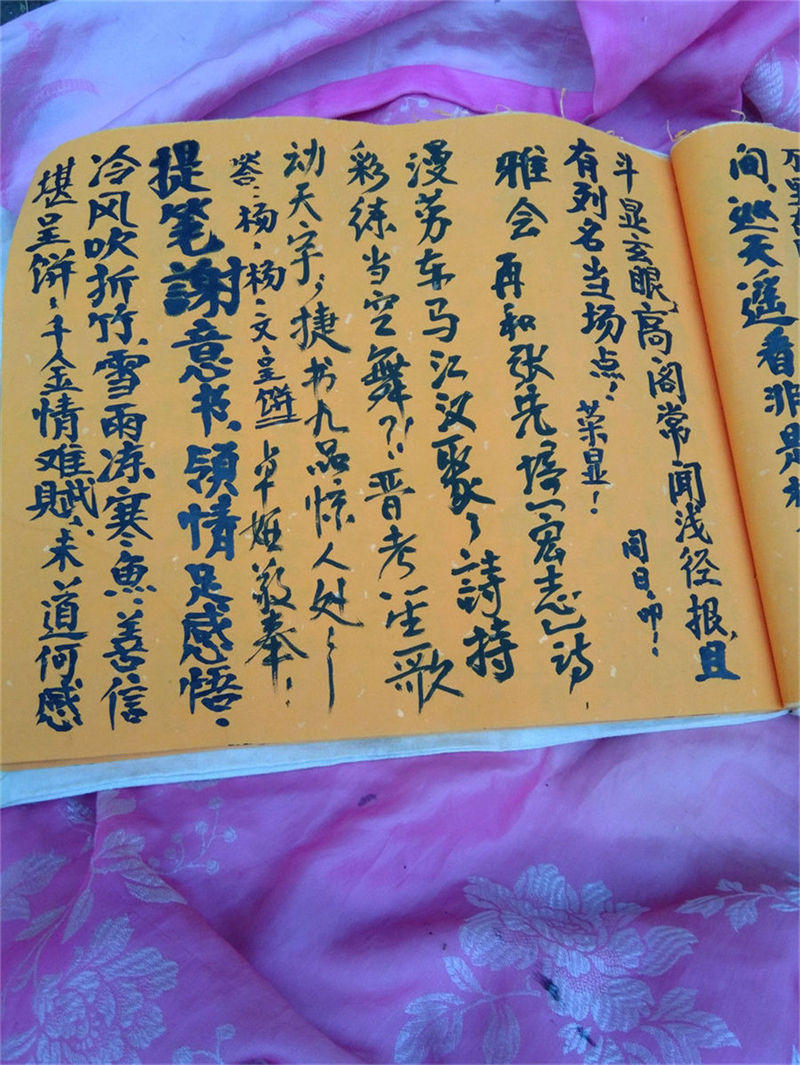 万里
间，巡天遥看非是
斗显玄眼，高阁常闻浅径报，且
有列名当场点！菜显！
同日·叩！
雅会 再和张先培（宏志）诗
漫劳车马江汉聚，诗持
彩练当空舞？！晋考笙歌
动天字，捷书九品惊人处
答·杨·杨·文呈饼 卓姬敬奉！
提笔謝意书，领情足感悟·
冷风吹折竹，雪雨冻寒魚·善信
堪呈饼·千金情难赋，未道何感